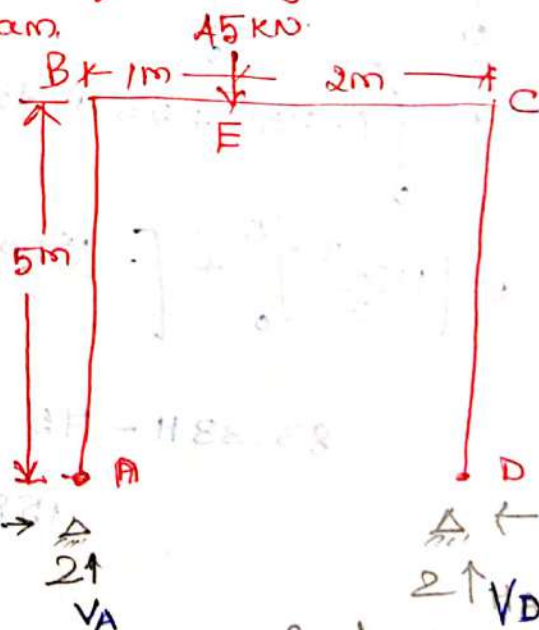 am.
45 KN.
B 1m 2m C
E
5m
A D
2 2
VA VD